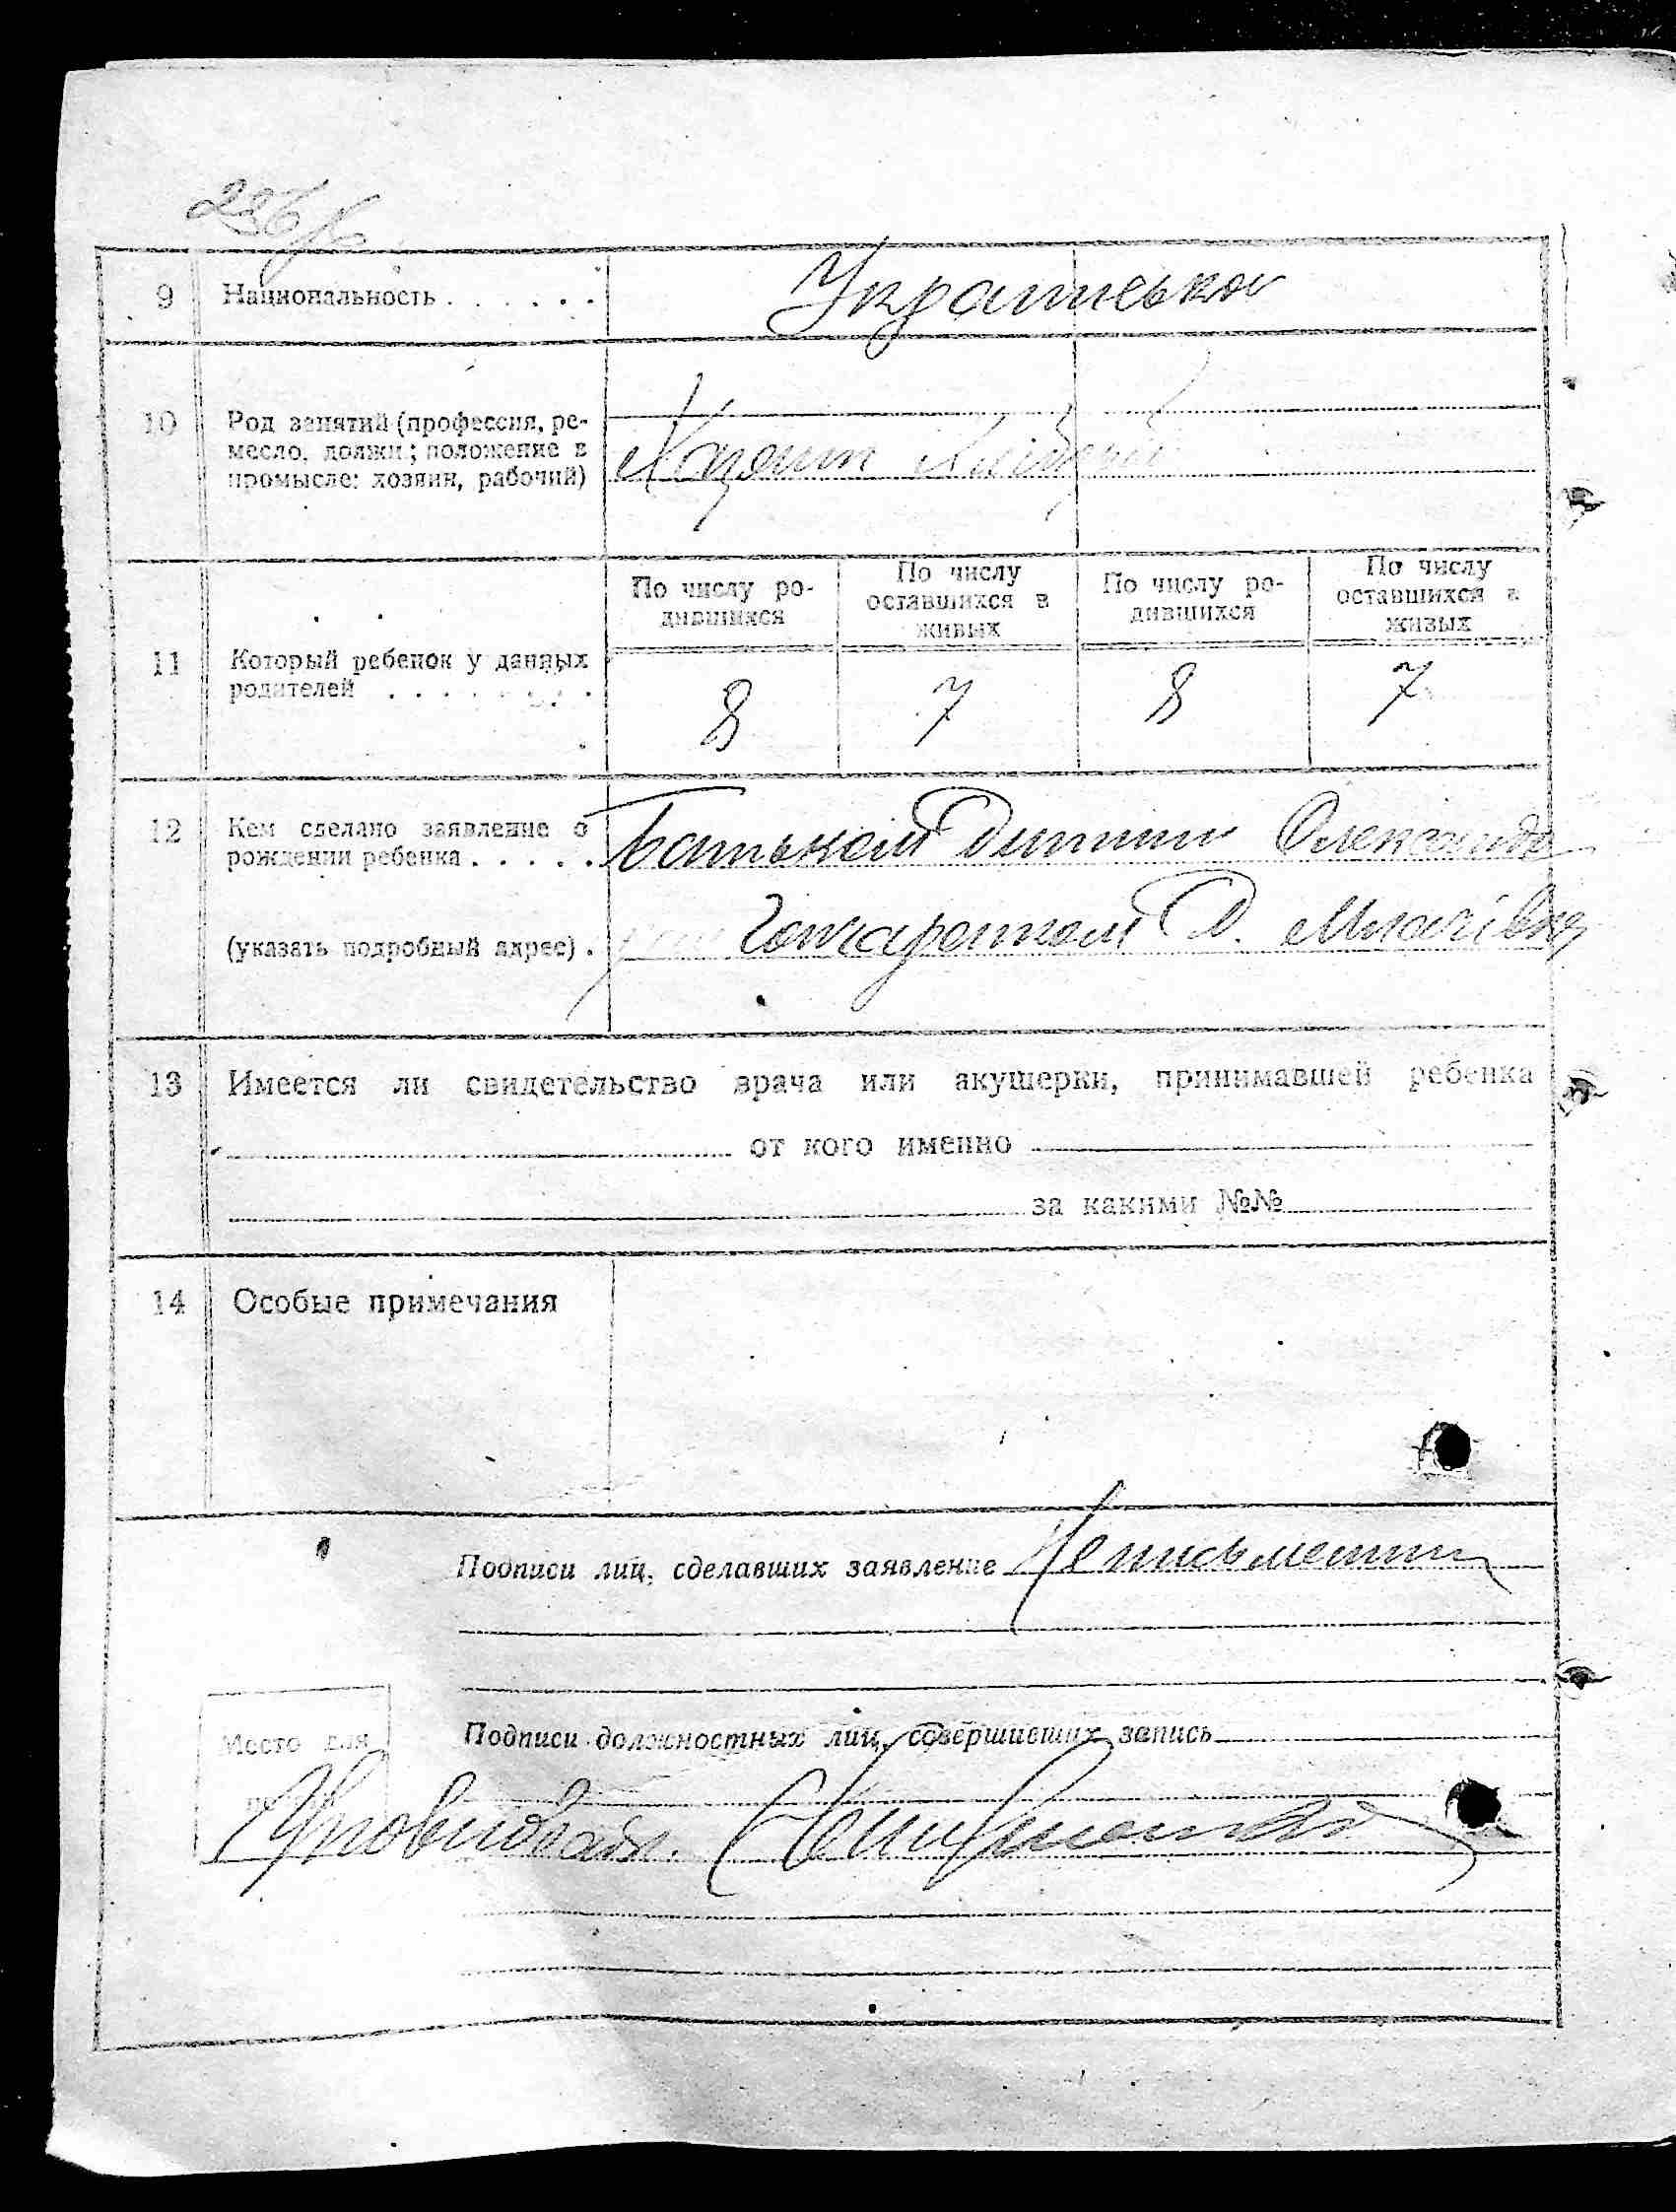 9 Национальность . . . . . . Українсько
10 Род занятий (профессия, ре-
месло, должн.; положение в
промысле: хозяин, рабочий)
По числу ро-
дившихся
По числу
оставшихся в
живых
По числу ро-
дившихся
По числу
оставшихся в
живых
11 Который ребенок у данных
родителей . . . . . . . .
8 7 8 7
12 Кем сделано заявление о
рождении ребенка . . . . . Батьком Дитини Олександр
(указать подробный адрес) . Гончаренком Д.
13 Имеется ли свидетельство врача или акушерки, принимавшей ребенка
от кого именно
за какими №№
14 Особые примечания
Подписи лиц, сделавших заявление Неписьменни
Подписи должностных лиц, совершивших запись
Место для